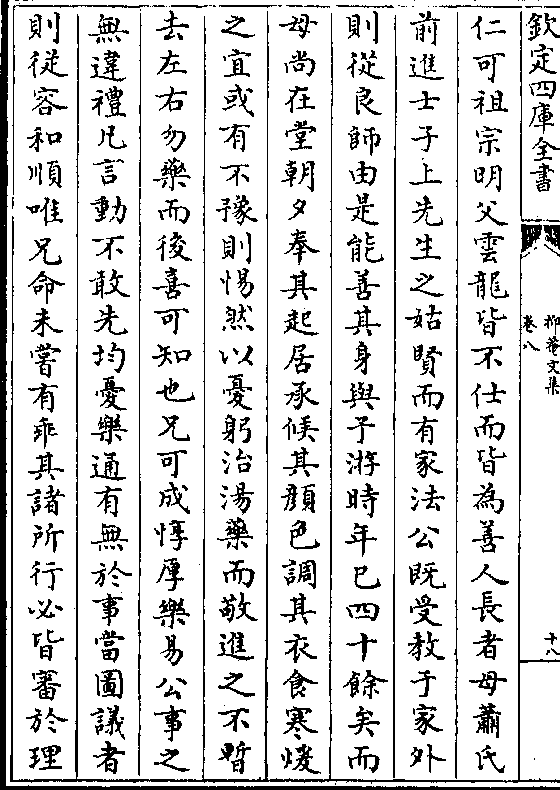 欽定四庫全書
抑菴文集
卷八
十八
仁可祖宗明父雲龍皆不仕而皆為善人長者母蕭氏
前進士子上先生之姑賢而有家法公既受教于家外
則從良師由是能善其身與予游時年已四十餘矣而
母尚在堂朝夕奉其起居承候其顔色調其衣食寒煖
之宜或有不豫則惕然以憂躬治湯藥而敬進之不暫
去左右勿藥而後喜可知也兄可成惇厚樂易公事之
無違禮凡言動不敢先均憂樂通有無於事當圖議者
則從容和順唯兄命未嘗有乖其諸所行必皆審於理